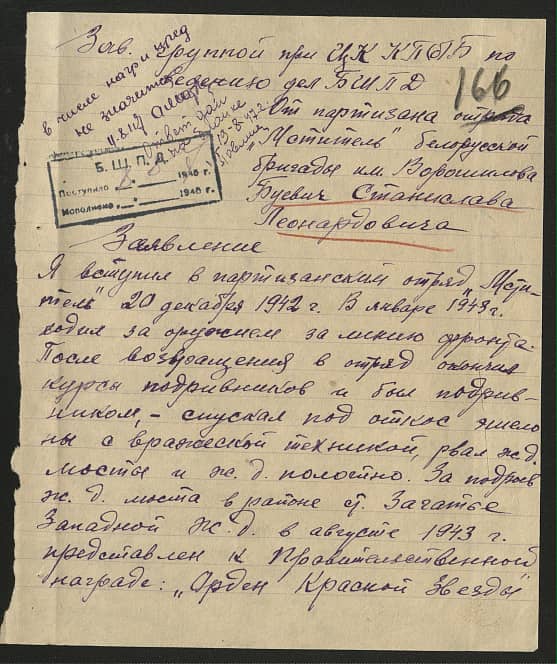 Зав. группой при ЦК КПбБ по
ведению дел БШПД
166
в числе награжд
не значится
Ответ дан
Б. Ш. П. Д.
Поступило 1946 г.
Исполнено 1946 г.
От партизана отряда
"Мститель" белорусской
бригады им. Ворошилова
Буевич Станислава
Леонардовича
Заявление
Я вступил в партизанский отряд "Мсти-
тель" 20 декабря 1942 г. В январе 1943 г.
ходил за оружием за линию фронта.
После возвращения в отряд окончил
курсы подривников и был подрив-
ником, - спускал под откос эшело
ны с вражеской техникой, рвал ж.д.
мосты и ж. д. полотно. За подрыв
ж. д. моста в районе ст. Загатье
Западной ж. д. в августе 1943 г.
представлен к Правительственной
награде: "Орден Красной Звезды"